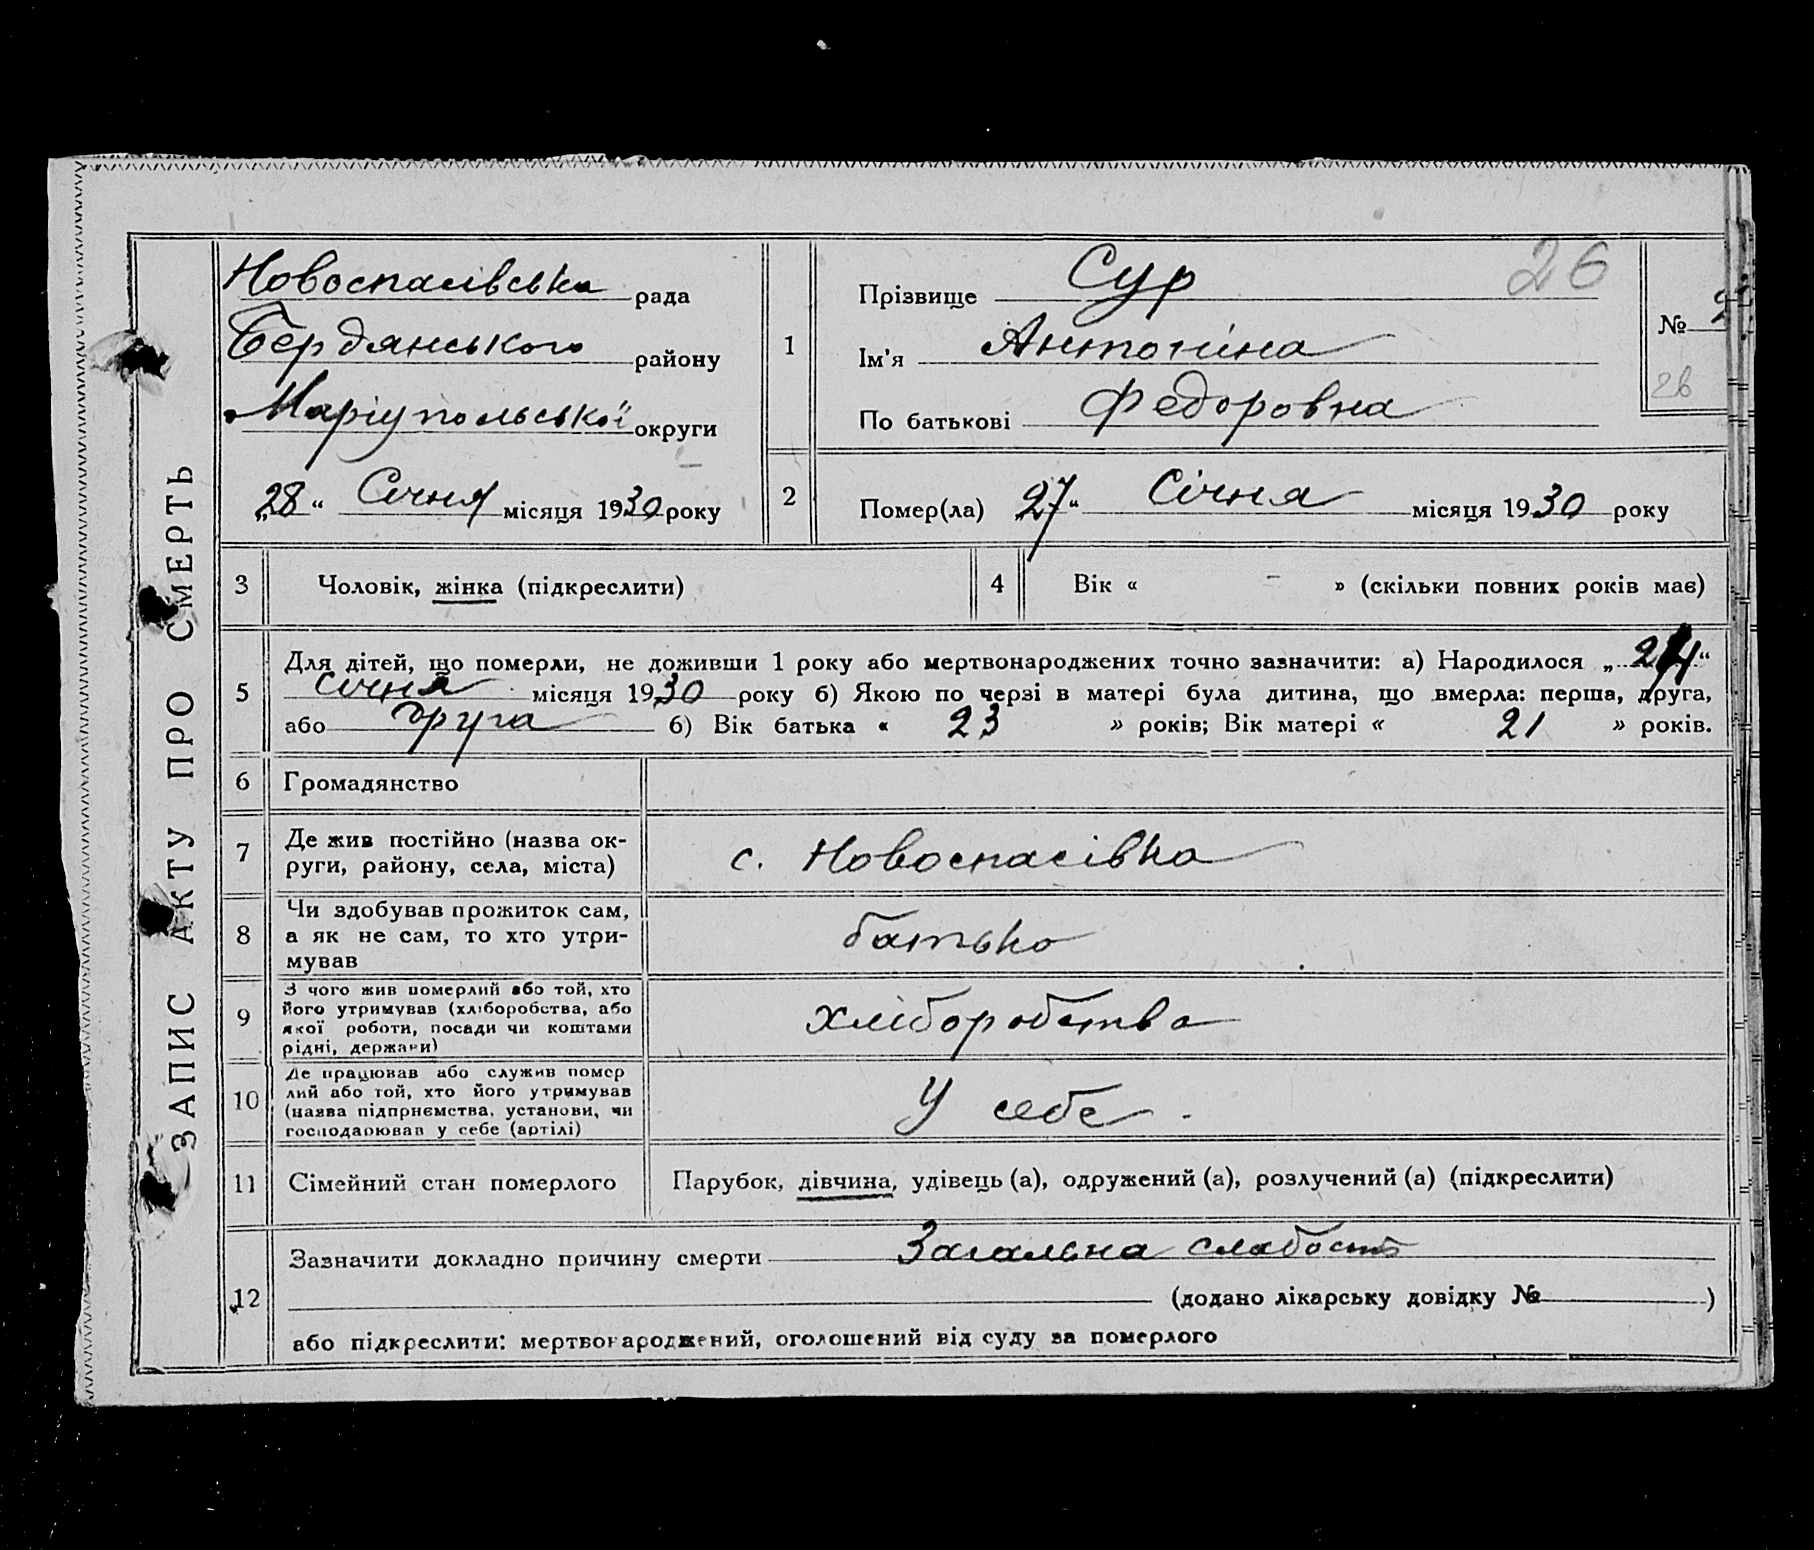 ЗАПИС АКТУ ПРО СМЕРТЬ
Новоспасівська рада
Бердянського району
Маріупольської округи
„28“ Січня місяця 1930 року
1
Прізвище Сур
26
Ім'я Антоніна
По батькові Федоровна
№
2
Помер(ла) „27“ Січня місяця 1930 року
3 Чоловік, жінка (підкреслити)
4 Вік « – » (скільки повних років має)
5
Для дітей, що померли, не доживши 1 року або мертвонароджених точно зазначити: а) Народилося
січня місяця 1930 року б) Якою по черзі в матері була дитина, що вмерла: перша, друга,
або друга б) Вік батька « 23 » років; Вік матері « 21 » років.
6 Громадянство
7
Де жив постійно (назва ок-
руги, району, села, міста)
с. Новоспасівка
8
Чи здобував прожиток сам,
а як не сам, то хто утри-
мував
батько
9
З чого жив померлий або той, хто
його утримував (хліборобства, або
якої роботи, посади чи коштами
рідні, держави)
хліборобства
10
Де працював або служив помер
лий або той, хто його утримував
(назва підприємства, установи, чи
господарював у себе (артілі)
У себе
11 Сімейний стан померлого
Парубок, дівчина, удівець (а), одружений (а), розлучений (а) (підкреслити)
12
Зазначити докладно причину смерти Загальна слабость
(додано лікарську довідку № )
або підкреслити: мертвонароджений, оголошений від суду за померлого